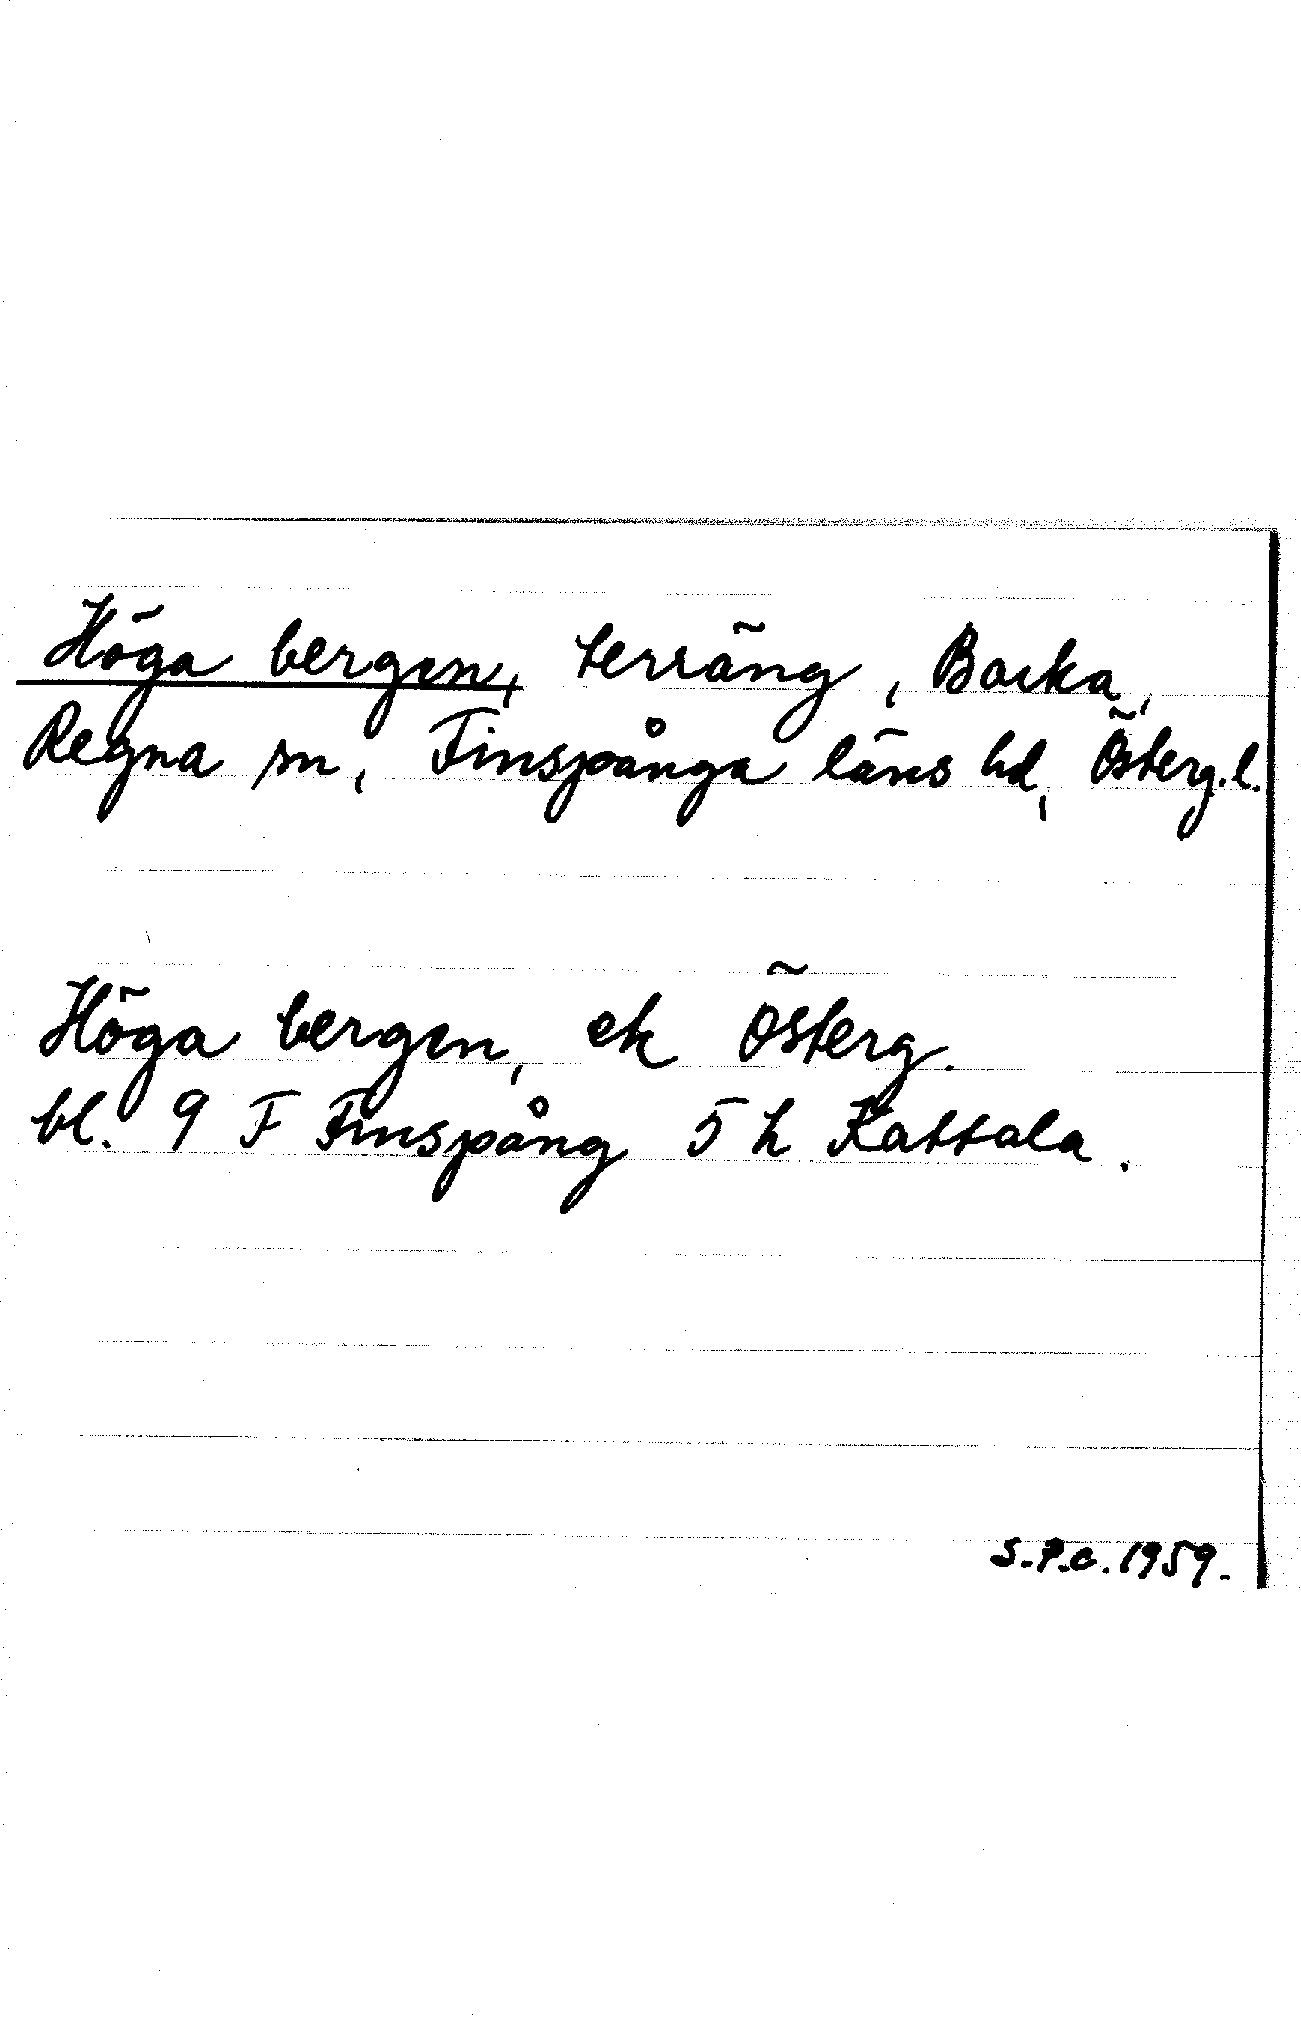 Höga bergen, terräng, Backa,
Regna sn, Finspånga läns hd, Österg.l.
Höga bergen, ek Österg.
bl. 9 F Finspång 5 h Kattala.
S.P.C. 1959.